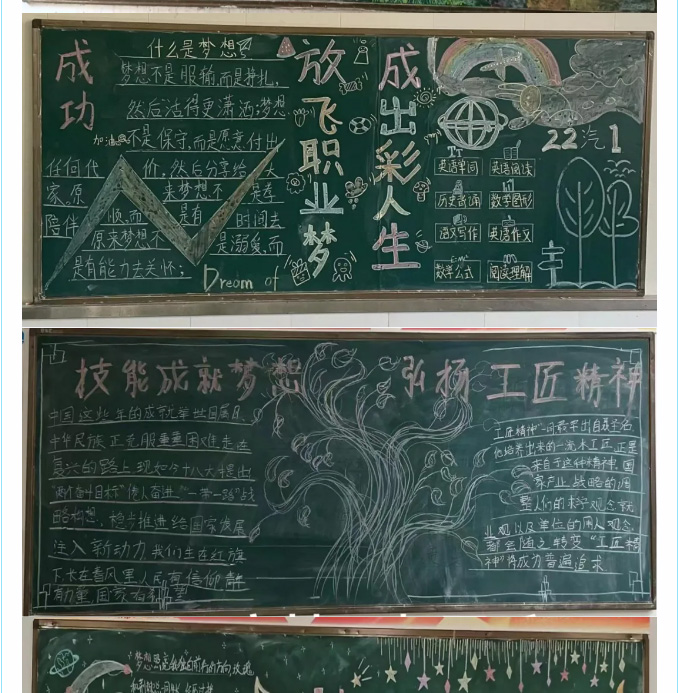 成功
什么是梦想
梦想不是服输,而是挣扎,
然后活得更潇洒;梦想
加油
不是保守,而是愿意付出
任何代价,然后分享给大
家。原来梦想不是孝
陪伴顺,而是有时间去
原来梦想不是溺爱,而
是有能力去关怀;
Dream of
放飞职业梦
成出彩人生
22汽1
英语单词 英语阅读
历史背诵 数学图形
语文写作 英语作文
数学公式 阅读理解
技能成就梦想
中国这些年的成就举世瞩目,
中华民族正克服重重困难走在
复兴的路上现如今十八大提出
"两个奋斗目标"使人奋进"一带一路"战
略构想,稳步推进给国家发展
注入新动力我们生在红旗
下长在春风里人民有信仰
国家有
弘扬工匠精神
工匠精神一词最早出自聂圣石,
他培养出来的一流木工匠正是
来自于这种精神,国
家产业战略的调
整人们的求学观念就
业观以及单位的用人观念
都会随之转变"工匠精
神"将成为普遍追求